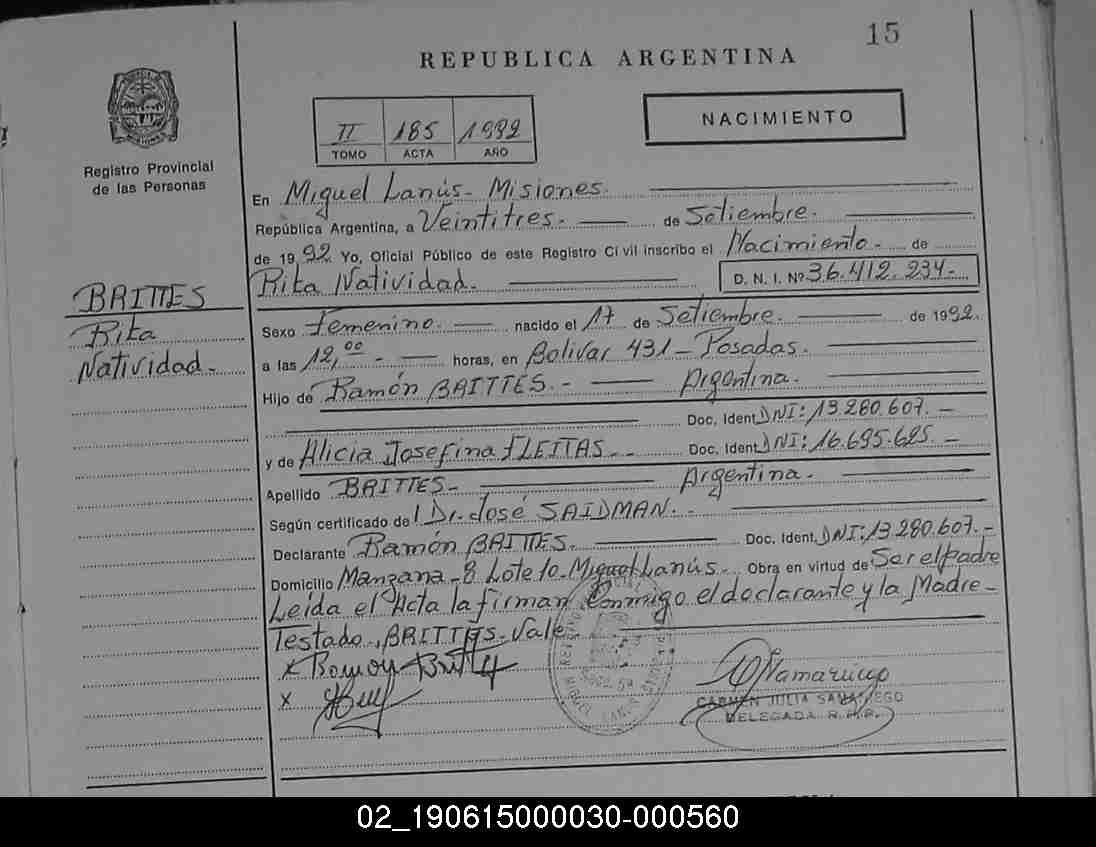 15
REPUBLICA ARGENTINA
Registro Provincial
de las Personas
II 185 1992
TOMO ACTA AÑO
NACIMIENTO
En Miguel Lanús - Misiones.
República Argentina, a Veintitres. - de Setiembre.
de 1992. Yo, Oficial Público de este Registro Civil inscribo el Nacimiento - de
Rita Natividad. D. N. I. Nº 36.412.234-
BRITTES
Rita
Natividad.-
Sexo Femenino. nacido el 17 de Setiembre. de 1992.
a las 12,00 - horas, en Bolivar 431 - Posadas.
Hijo de Ramón BRITTES.- Argentina.
Doc. Ident. DNI: 13.280.607.-
y de Alicia Josefina FLEITAS.- Doc. Ident. DNI: 16.695.695.-
Apellido BRITTES- Argentina.
Según certificado del Dr. José SAIDMAN.-
Declarante Ramón BRITTES. Doc. Ident. DNI: 13.280.607.-
Domicilio Manzana - 8 Lote 10 - Miguel Lanús. Obra en virtud de Ser el padre
Leída el Acta la firman Conmigo el declarante y la Madre-
Testado, BRITTES - Vale
x Ramon Brittes
x
CARMEN JULIA SAMANIEGO
DELEGADA R.P.P.
02_190615000030-000560